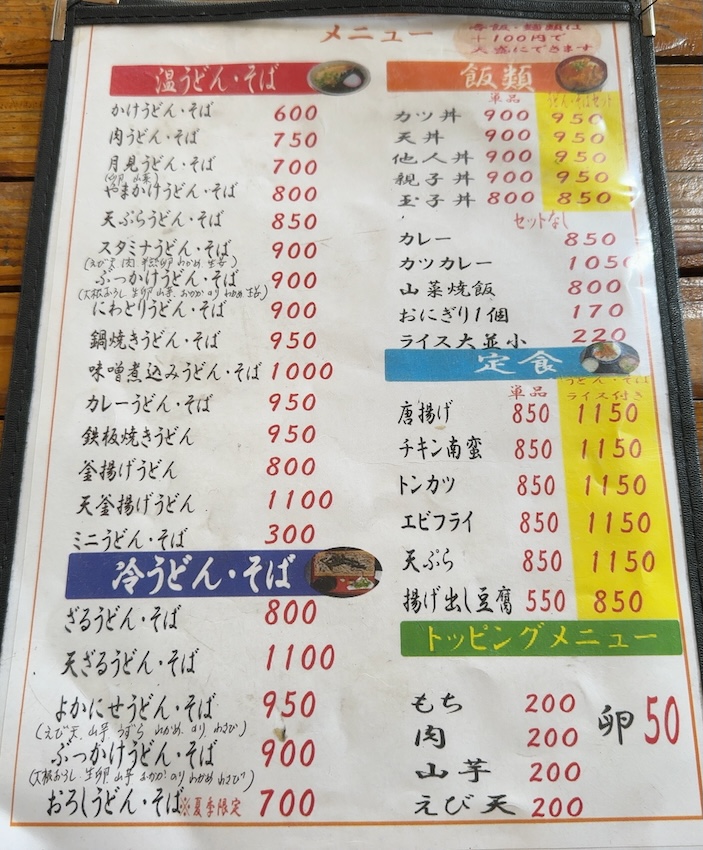 メニュー
丼飯・麺類は
+100円で
大盛にできます
温うどん・そば
かけうどん・そば 600
肉うどん・そば 750
月見うどん・そば 700
(卵 山菜)
やまかけうどん・そば 800
天ぷらうどん・そば 850
スタミナうどん・そば 900
(えび天 肉 半熟卵 わかめ 生姜)
ぶっかけうどん・そば 900
(大根おろし 生卵 山芋 おかか のり わかめ 生姜)
にわとりうどん・そば 900
鍋焼きうどん・そば 950
味噌煮込みうどん・そば 1000
カレーうどん・そば 950
鉄板焼きうどん 950
釜揚げうどん 800
天釜揚げうどん 1100
ミニうどん・そば 300
冷うどん・そば
ざるうどん・そば 800
天ざるうどん・そば 1100
よかにせうどん・そば 950
(えび天 山芋 うずら わかめ のり わさび)
ぶっかけうどん・そば 900
(大根おろし 生卵 山芋 おかか のり わかめ わさび)
おろしうどん・そば ※夏季限定 700
飯類
単品 うどん・そばセット
カツ丼 900 950
天丼 900 950
他人丼 900 950
親子丼 900 950
玉子丼 800 850
セットなし
カレー 850
カツカレー 1050
山菜焼飯 800
おにぎり1個 170
ライス大並小 220
定食
単品 うどん・そば
ライス付き
唐揚げ 850 1150
チキン南蛮 850 1150
トンカツ 850 1150
エビフライ 850 1150
天ぷら 850 1150
揚げ出し豆腐 550 850
トッピングメニュー
もち 200
肉 200
山芋 200
えび天 200
卵 50